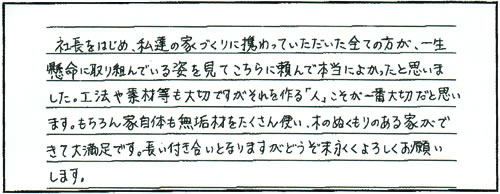 社長をはじめ、私達の家づくりに携わっていただいた全ての方が、一生
懸命に取り組んでいる姿を見てこちらに頼んで本当によかったと思いま
した。工法や素材等も大切ですがそれを作る「人」こそが一番大切だと思い
ます。もちろん家自体も無垢材をたくさん使い、木のぬくもりのある家がで
きて大満足です。長い付き合いとなりますがどうぞ末永くよろしくお願い
します。